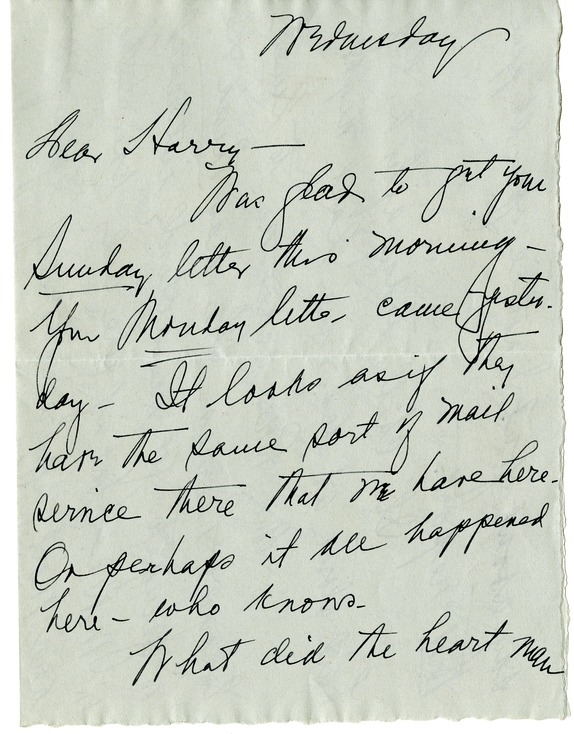 Wednesday
Dear Harry—
Was glad to get your
Sunday letter this morning—
Your Monday letter came yester-
day— It looks as if they
have the same sort of mail
service there that we have here.
Or perhaps it all happened
here— who knows.
What did the heart man